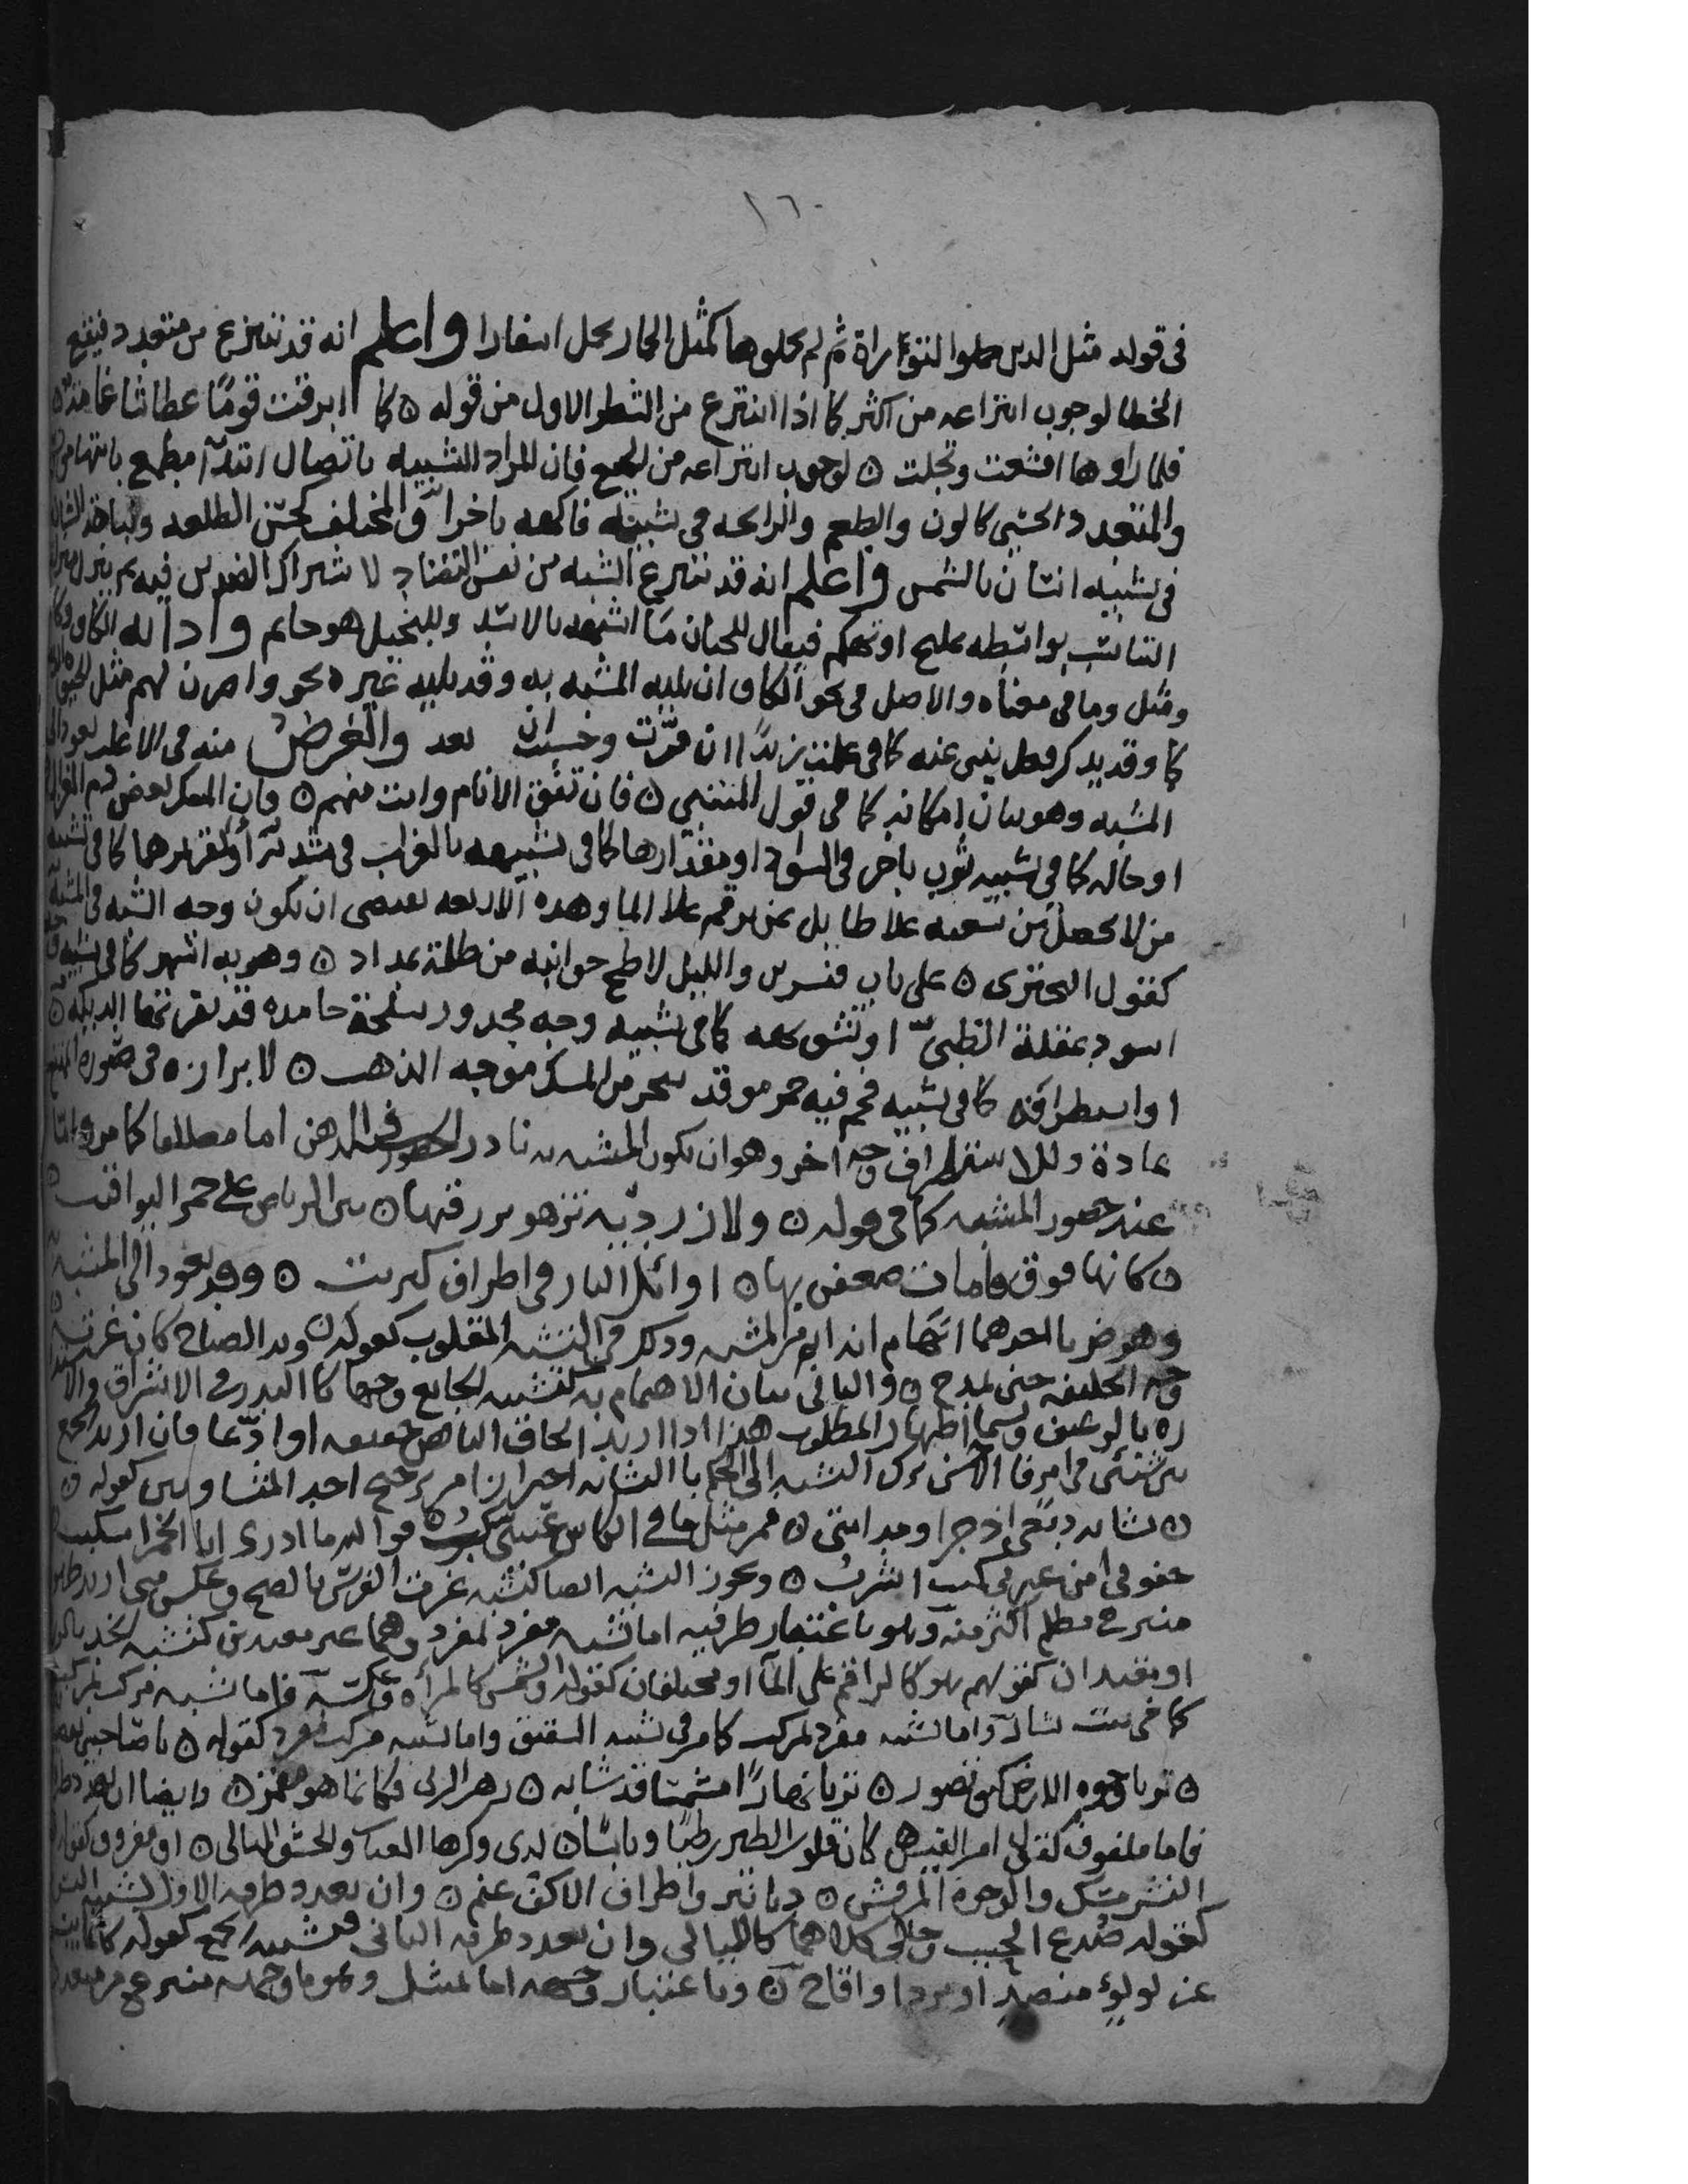 ١٦٠
فى قوله مثل الذين حملوا التوراة ثم لم يحملوها كمثل الحمار يحمل اسفارا واعلم انه قد ينتزع من متعدد فيقع
الخطا لوجوب انتزاعه من اكثر كما اذا انتزع من الشطر الاول من قوله ه كما ابرقت قومًا عطاشا غمامة ه
فلما راوها اقشعت وتجلت ه لوجوب انتزاعه من الجميع فان المراد التشبيه باتصال ابتدآ مطمع بانتها
والمتعدد الحسى كاللون والطعم والرائحه فى تشبيه فاكهه باخرا والمختلف كحسن الطلعه ونباهة الشان
فى تشبيه انسان بالشمس واعلم انه قد ينتزع الشبه من نفس التضاد لاشتراك الضدين فيه ثم ينزل منزله
التناسب بواسطه تمليح او تهكم فيقال للجبان ما اشبهه بالاسد وللبخيل هو حاتم واداته الكاف وكان
ومثل وما فى معناه والاصل فى نحو الكاف ان يليه المشبه به وقد يليه غيره نحو واضرب لهم مثل الحيوة
كما وقد يذكر فعل ينبى عنه كما فى علمت زيدًا ان قرّبت وحسبت ان بعد والغرض منه فى الاغلب يعود الى
المشبه وهو بيان امكانه كما فى قول المتنبى ه فان تفق الانام وانت منهم ه فان المسك بعض دم الغزال
او حاله كما فى تشبيه ثوب باخر فى السواد او مقدارها كما فى تشبيهه بالغراب فى شدته او تقريرها كما فى تشبيه
من لا يحصل من سعيه علا طايل بمن يرقم علا الما وهذه الاربعه تقتضى ان يكون وجه الشبه فى المشبه
كقول البحترى ه على باب قنسرين والليل لاطخ جوانبه من ظلمة بمداد ه وهو به اشهر كما فى تشبيه وجه
اسود بمقلة الظبى او تشويهه كما فى تشبيه وجه مجدور بسلحة جامده قد نقرتها الديكه ه
او استطرافه كما فى تشبيه فحم فيه جمر موقد ببحر من المسك موجه الذهب ه لابرازه فى صوره الممتنع
عادة وللاستطراف وجه اخر وهو ان يكون المشبه به نادر الحضور فى الذهن اما مطلقا كما مر واما
عند حضور المشبه كما فى قوله ه ولازورديه تزهو بزرقتها ه بين الرياض على حمر اليواقيت ه
ه كانها فوق قامات ضعفن بها ه اوائل النار فى اطراف كبريت ه وقد يعود الى المشبه به
وهو ضربان احدهما ايهام انه اتم من المشبه وذلك فى التشبيه المقلوب كقوله ه وبدا الصباح كان غرته ه
وجه الخليفه حين يمتدح ه والثانى بيان الاهتمام به كتشبيه الجايع وجها كالبدر فى الاشراق والاستدا
ره بالرغيف ويسما اظهار المطلوب هذا اذا اريد الحاق الناقص حقيقه او ادّعا فان اريد الجمع
بين شيئين فى امر فالاحسن ترك التشبيه الى الحكم بالتشابه احترازا من ترجيح احد المتساويين كقوله ه
ه تشابه دمعى اذ جرا ومدامتى ه فمن مثل ما فى الكاس عينى تسكب ه فوالله ما ادرى ابا الخمر اسبلت
جفونى امن عبرتى كنت اشرب ه ويجوز التشبيه ايضا كتشبيه غرة الفرس بالصبح وعكسه متى اريد ظهور
منير فى مظلم اكثر منه وهو باعتبار طرفيه اما تشبيه مفرد بمفرد وهما غير مقيدين كتشبيه الخد بالورد
او مقيدان كقولهم هو كالراقم على المآ او مختلفان كقوله والشمس كالمرآه وعكسه واما تشبيه مركب بمركب
كما فى بيت بشار واما تشبيه مفرد بمركب كما مر فى تشبيه الشقيق واما تشبيه مركب بمفرد كقوله ه يا صاحبى تقصيا
ه تريا وجوه الارض كيف تصور ه تريا نهارًا مشمسًا قد شابه ه زهر الربى فكانما هو مقمر ه وايضا ان تعدد طرفاه
فاما ملفوف كقول امر القيس ه كان قلوب الطير رطبًا ويابسًا ه لدى وكرها العناب والحشف البالى ه او مفروق كقوله
النشر مسك والوجوه ه دنانير واطراف الاكف عنم ه وان تعدد طرفه الاول فتشبيه التسويه
كقوله صدغ الحبيب وحالى كلاهما كالليالى وان تعدد طرفه الثانى فتشبيه الجمع كقوله كانما يبسم
عن لولوء منضد او برد او اقاح ه وباعتبار وجهه اما تمثيل وهو ما وجهه منتزع من متعدد